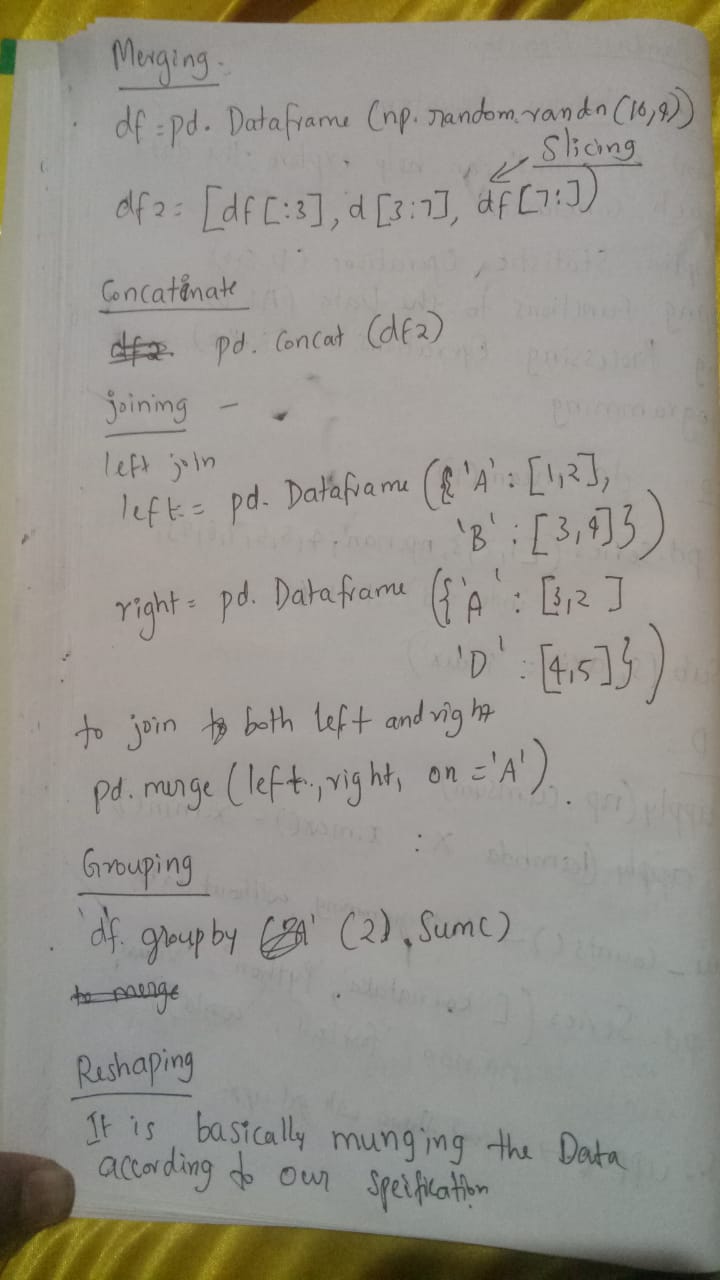 Merging -
df = pd. Dataframe (np. random.randn(10,4))
Slicing
df2 = [df[:3], d[3:7], df[7:])
Concatenate
pd. Concat (df2)
joining -
left join
left = pd. Dataframe ({'A' : [1,2],
'B' : [3,4]})
right = pd. Dataframe ({'A' : [3,2]
'D' : [4,5]})
to join both left and right
pd. merge (left, right, on ='A').
Grouping
df. groupby (2). Sum()
to merge
Reshaping
It is basically munging the Data
according to our Speification